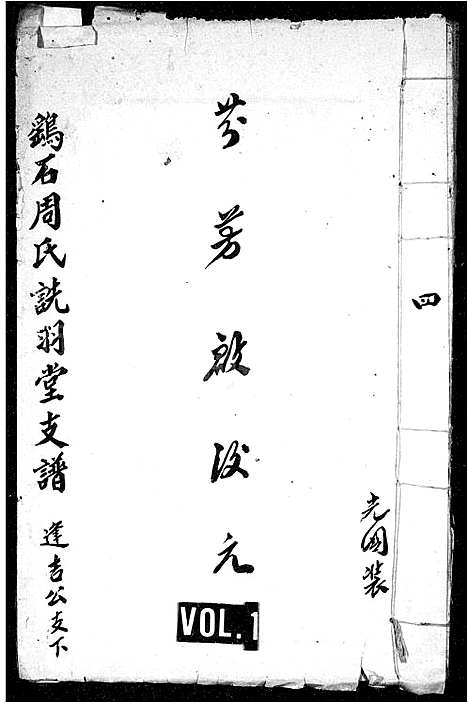 四
光國裝
芬芳啟后元
鷄石周氏詵羽堂支譜 逢吉公支下
VOL. 1